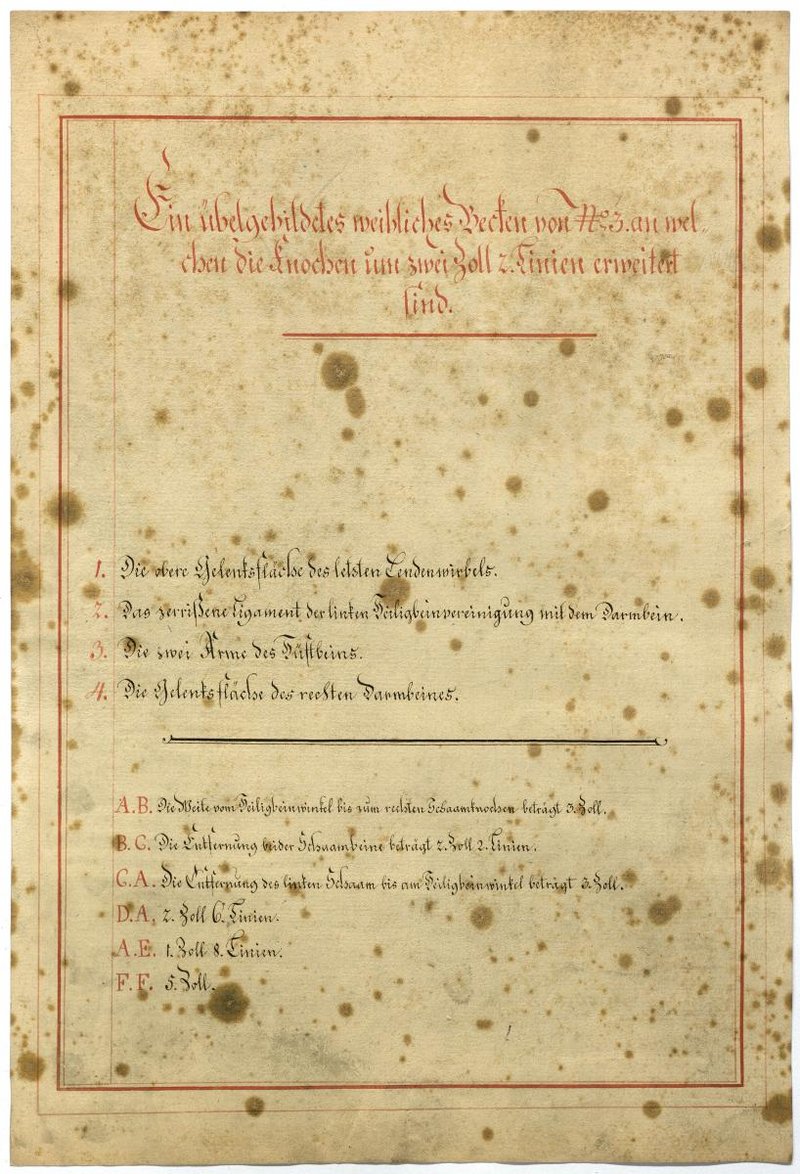 Ein übelgebildetes weibliches Becken von No. 3. an wel-
chen die Knochen um zwei Zoll 2. Linien erweitert
sind.
1. Die obere Gelenksfläche des letsten Lendenwirbels.
2. Das zerrißene Ligament der linken Heiligbeinvereinigung mit dem Darmbein.
3. Die zwei Arme des Hüftbeins.
4. Die Gelenksfläche des rechten Darmbeines.
A.B. Die Weite vom Heiligbeinwinkel bis zum rechten Schaamknochen beträgt 3. Zoll.
B.C. Die Entfernung beider Schaambeine beträgt 2. Zoll 2. Linien.
C.A. Die Entfernung des linken Schaam bis am Heiligbeinwinkel beträgt 3. Zoll.
D.A. 2. Zoll 6. Linien.
A.E. 1. Zoll 8. Linien.
F.F. 5. Zoll.